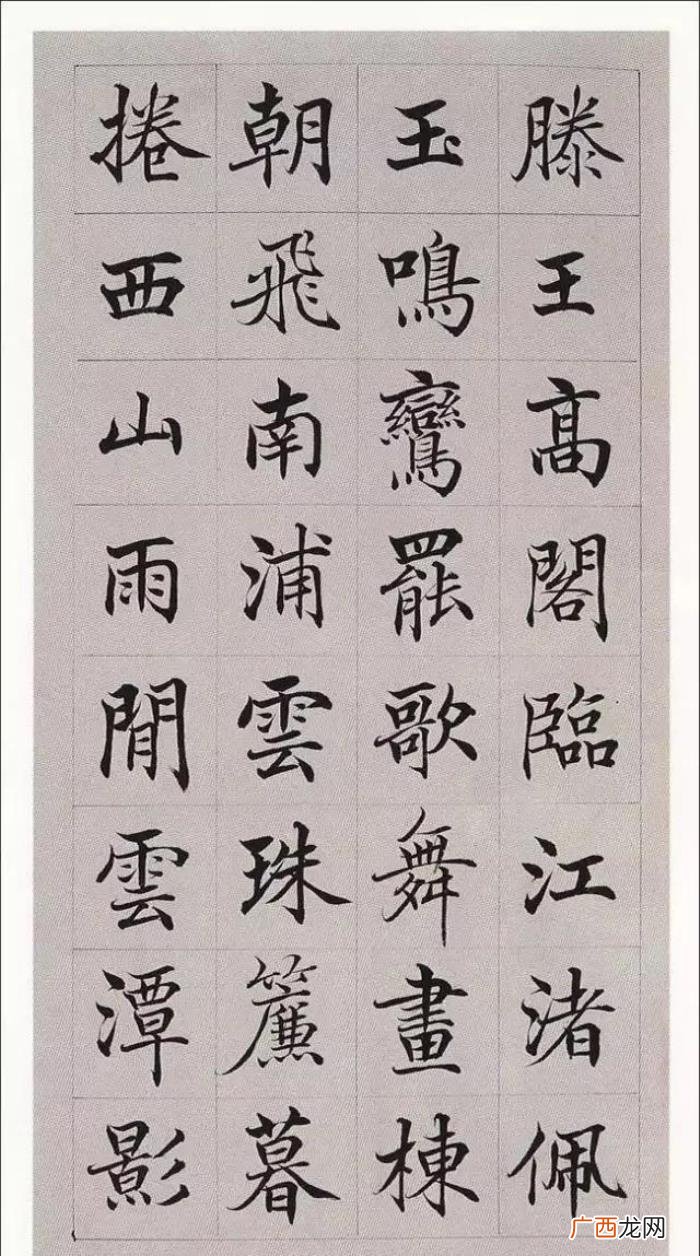 滕王高閣臨江渚佩
玉鳴鸞罷歌舞畫棟
朝飛南浦雲珠簾暮
捲西山雨閒雲潭影
广西龙网